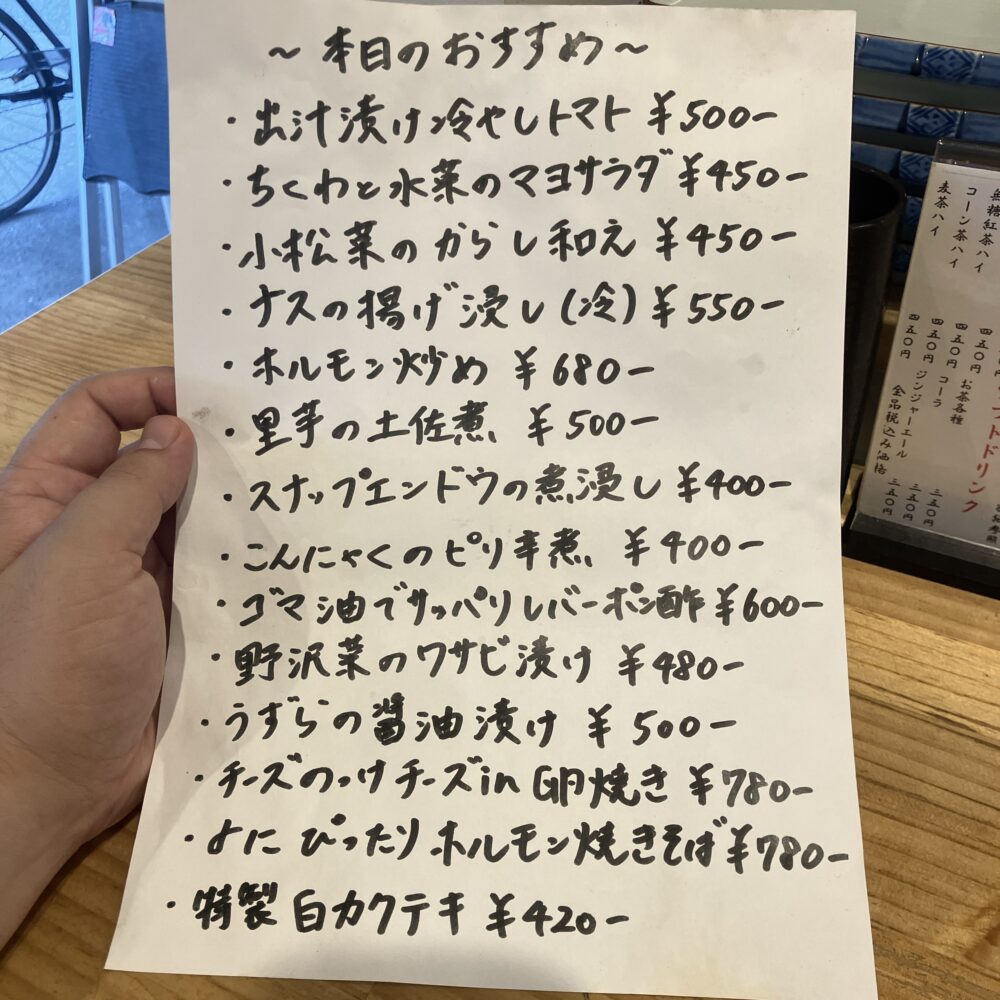 ～本日のおすすめ～
・出汁漬け冷やしトマト ¥500-
・ちくわと水菜のマヨサラダ ¥450-
・小松菜のからし和え ¥450-
・ナスの揚げ浸し(冷) ¥550-
・ホルモン炒め ¥680-
・里芋の土佐煮 ¥500-
・スナップエンドウの煮浸し ¥400-
・こんにゃくのピリ辛煮 ¥400-
・ゴマ油でサッパリレバーポン酢 ¥600-
・野沢菜のワサビ漬け ¥480-
・うずらの醤油漬け ¥500-
・チーズのっけチーズin卵焼き ¥780-
・よにぴったりホルモン焼きそば ¥780-
・特製白カクテキ ¥420-
無糖紅茶ハイ 四五〇円
コーン茶ハイ 四五〇円
麦茶ハイ 四五〇円
ドリンク
お茶各種 三五〇円
コーラ 三五〇円
ジンジャーエール 三五〇円
全品税込み価格